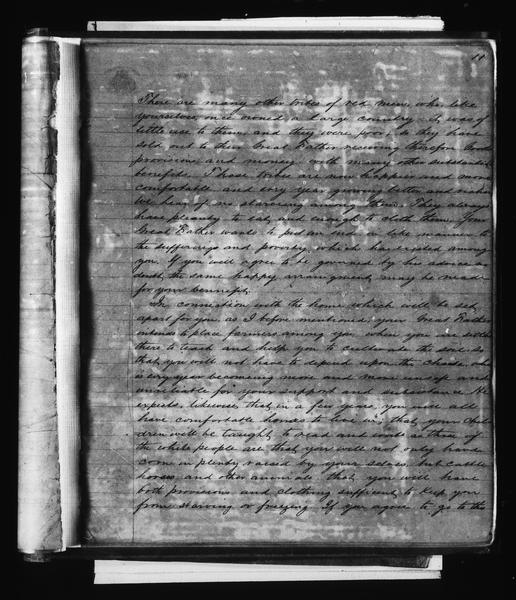 There are many other tribes of red men who like
yourselves once owned a large country. It was of
little use to them and they were poor, so they have
sold out to their Great Father receiving therefor Good
provisions and money with many other substantial
benefits. Those tribes are now happier and more
comfortable and every year growing better and richer
We hear of no starving among them. They always
have pleanty to eat, and enough to cloth them. Your
Great Father wants to put an end in like manner to
the sufferings and poverty which have existed among
you. If you will agree to be governed by his advice no
doubt the same happy arrangment may be made
for your bennifit.
In connection with the home which will be set
apart for you as I before mentioned your Great Father
intends to place farmers among you when you are settled
there to teach and help you to cultivate the soil so
that you will not have to depend upon the chase, which
is every year becoming more and more unsafe and
unreliable for your support and subsistence. He
expects, likewise, that in a few years, you will all
have comfortable homes to live in, that your chil-
dren will be taught to read and write as those of
the white people are, that you will not only have
corn in plenty raised by your selves, but cattle
horses and other animals that you will have
both provisions and clothing sufficient to keep you
from starving or freezing. If you agree to go to this